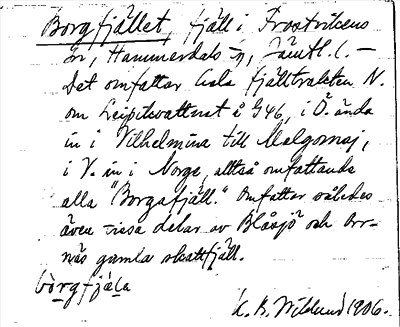 Borgfjället, fjäll i Frostvikens
sn, Hammerdals tg, Jämtl. l. –
Det omfattar hela fjälltrakten N.
om Leipikvattnet å G46, i Ö. ända
in i Vilhelmina till Malgomaj,
i V. in i Norge, alltså omfattande
alla "Borgafjäll." Omfattar således
även vissa delar av Blåsjö och Orr-
näs gamla skattfjäll.
bòrgfjä̀la
K. B. Wiklund 1906.